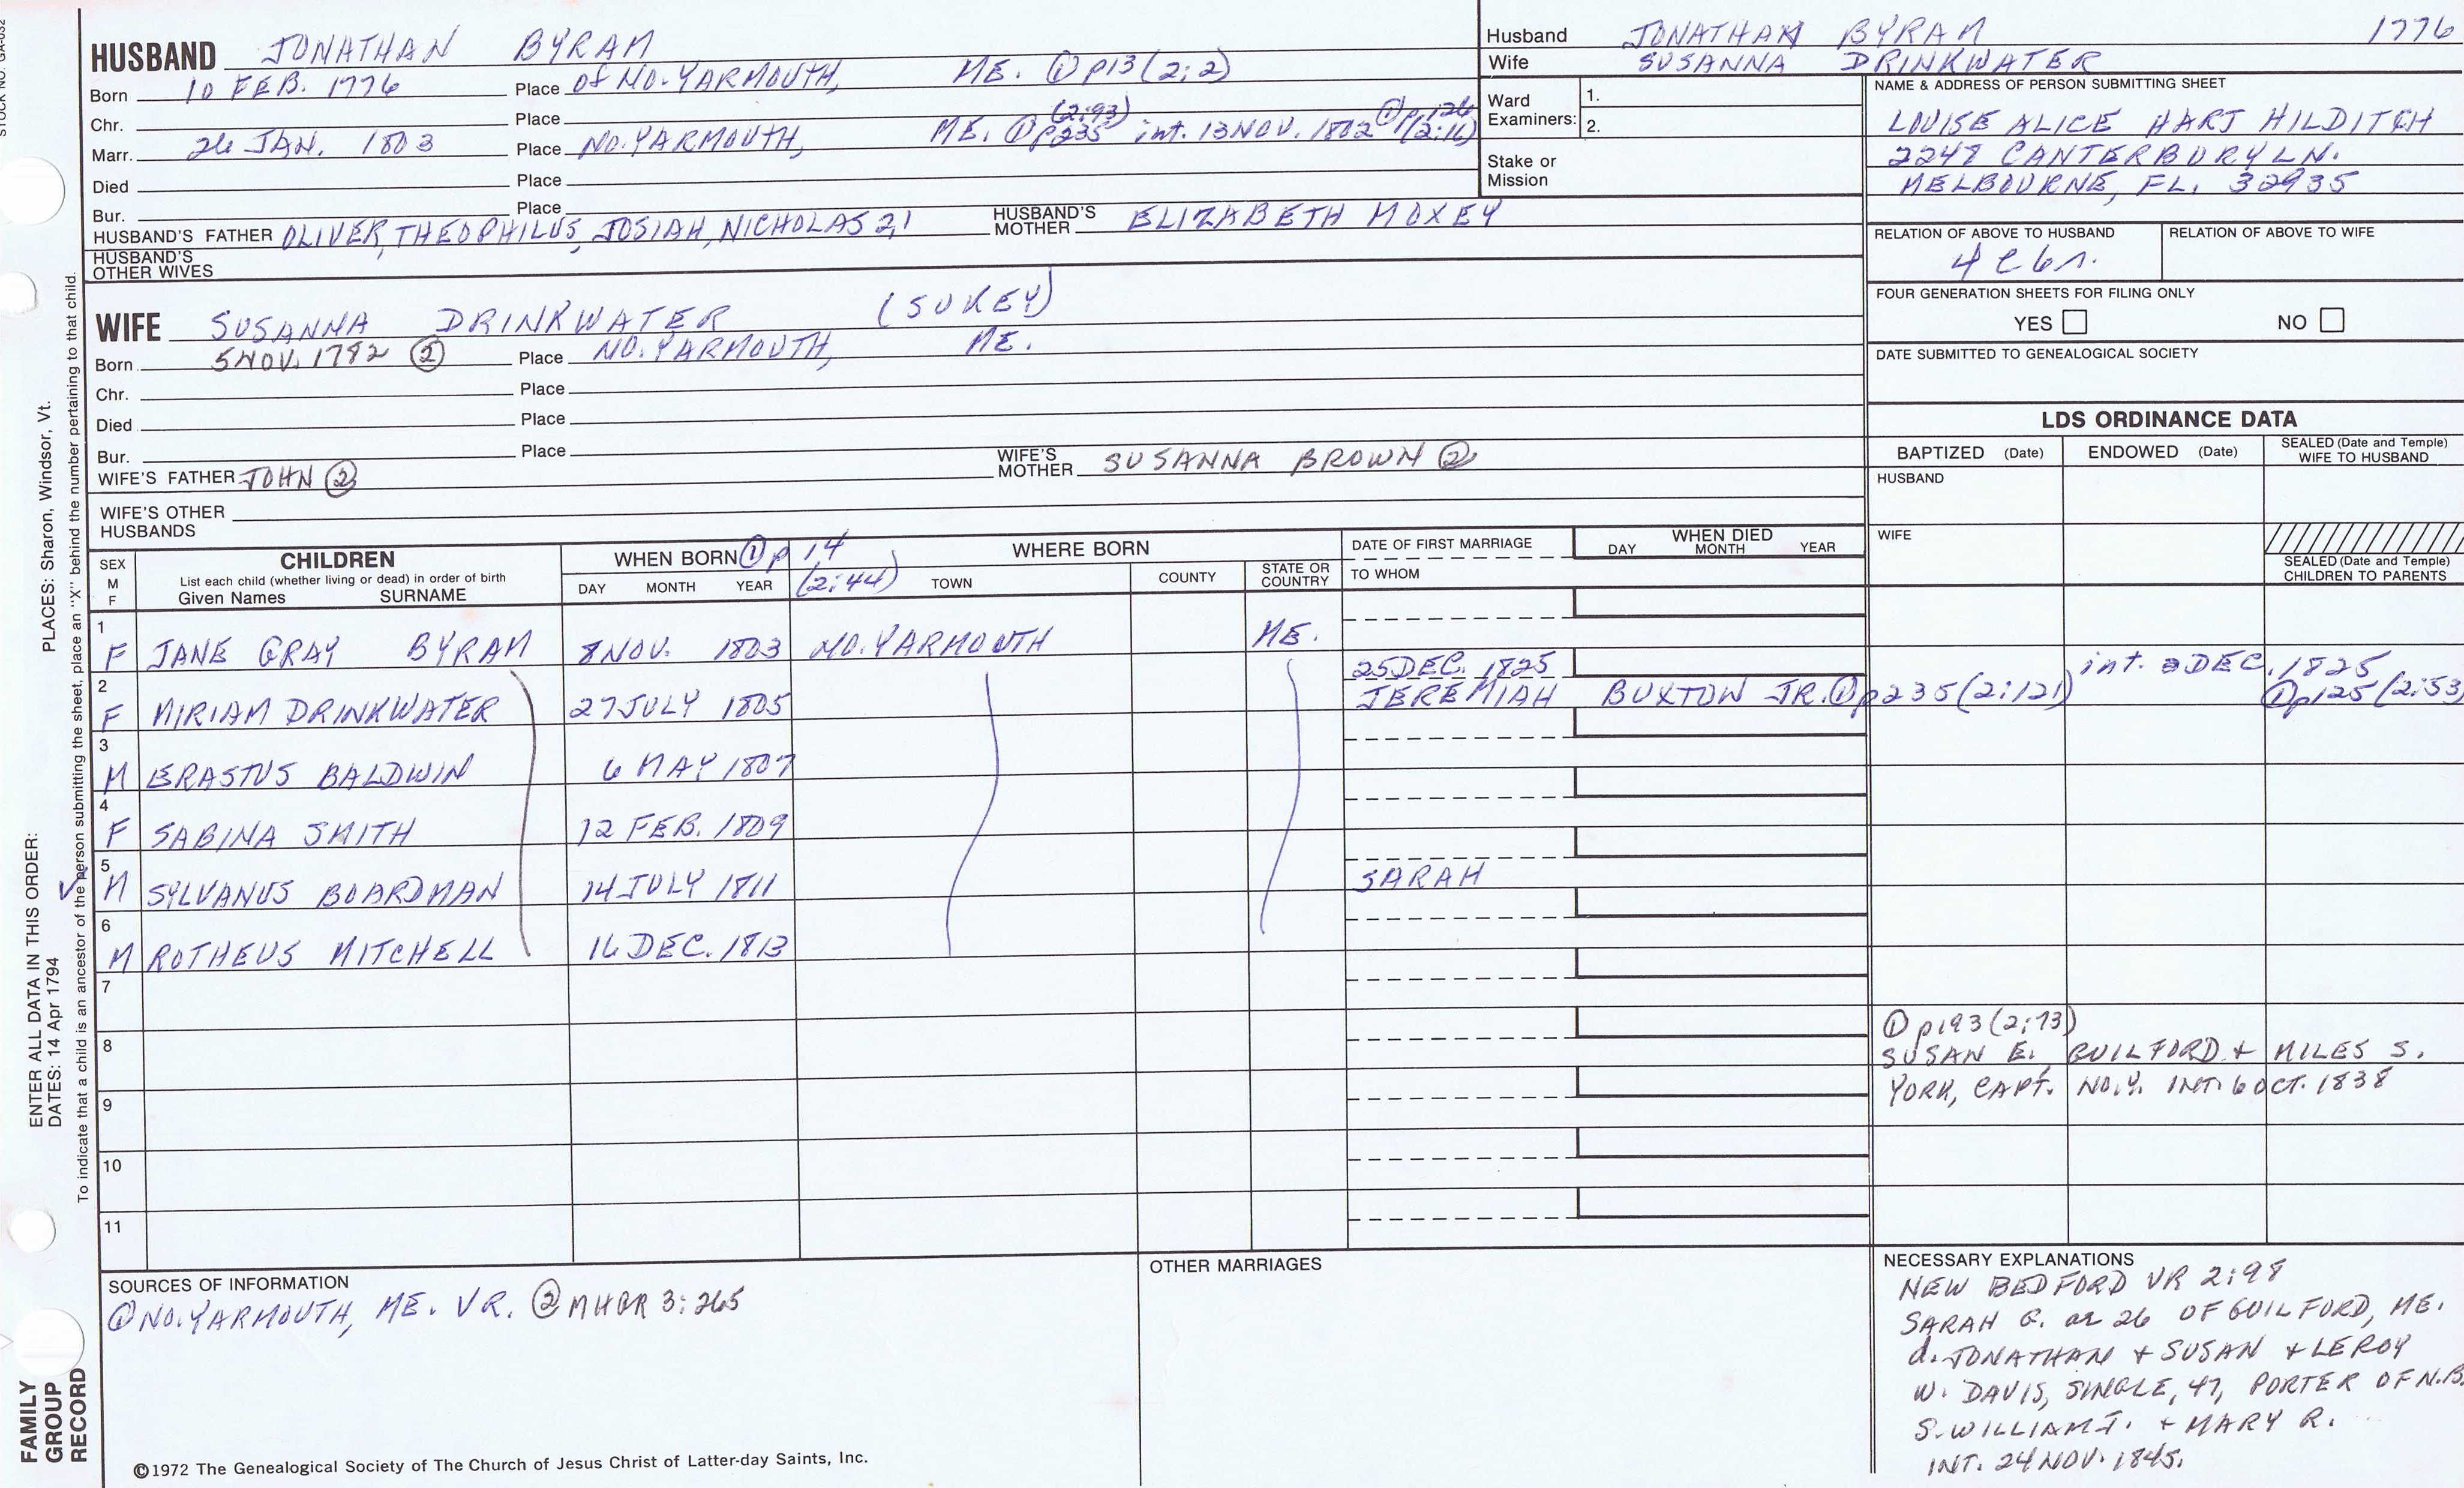 STOCK NO. GA-032
HUSBAND JONATHAN BYRAM
Born 10 FEB. 1776 Place of NO. YARMOUTH, ME. ① p13 (2:2)
Chr. Place
(2:93) ① p126
Marr. 26 JAN. 1803 Place NO. YARMOUTH, ME. ① p235 int. 13 NOV. 1802 (2:16)
Died Place
Bur. Place
HUSBAND'S FATHER OLIVER, THEOPHILUS, JOSIAH, NICHOLAS 2,1 HUSBAND'S MOTHER ELIZABETH MOXEY
HUSBAND'S OTHER WIVES
Husband JONATHAN BYRAM 1776
Wife SUSANNA DRINKWATER
Ward Examiners: 1.
2.
Stake or Mission
NAME & ADDRESS OF PERSON SUBMITTING SHEET
LOUISE ALICE HART HILDITCH
2248 CANTERBURY LN.
MELBOURNE, FL. 32935
RELATION OF ABOVE TO HUSBAND RELATION OF ABOVE TO WIFE
FOUR GENERATION SHEETS FOR FILING ONLY
YES NO
DATE SUBMITTED TO GENEALOGICAL SOCIETY
WIFE SUSANNA DRINKWATER (SUKEY)
Born 5 NOV. 1782 ② Place NO. YARMOUTH, ME.
Chr. Place
Died Place
Bur. Place
WIFE'S FATHER JOHN ② WIFE'S MOTHER SUSANNA BROWN ②
WIFE'S OTHER HUSBANDS
LDS ORDINANCE DATA
BAPTIZED (Date) ENDOWED (Date) SEALED (Date and Temple) WIFE TO HUSBAND
HUSBAND
WIFE
SEALED (Date and Temple) CHILDREN TO PARENTS
SEX M F CHILDREN WHEN BORN ① p 14 (2:44) WHERE BORN DATE OF FIRST MARRIAGE WHEN DIED
List each child (whether living or dead) in order of birth
Given Names SURNAME DAY MONTH YEAR TOWN COUNTY STATE OR COUNTRY TO WHOM DAY MONTH YEAR
1 F JANE GRAY BYRAM 8 NOV. 1803 NO. YARMOUTH ME.
25 DEC. 1825 int. DEC. 1825
2 F MIRIAM DRINKWATER 27 JULY 1805 JEREMIAH BUXTON JR. ① p235 (2:121) ① p125 (2:53)
3 M ERASTUS BALDWIN 6 MAY 1807
4 F SABINA SMITH 12 FEB. 1809
5 M SYLVANUS BOARDMAN 14 JULY 1811 SARAH
6 M ROTHEUS MITCHELL 16 DEC. 1813
7
8
9
10
11
① p193 (2:73)
SUSAN E. GUILFORD + MILES S.
YORK, CAPT. NO. Y. INT. 6 OCT. 1838
SOURCES OF INFORMATION
① NO. YARMOUTH, ME. VR. ② MHGR 3:265
OTHER MARRIAGES
NECESSARY EXPLANATIONS
NEW BEDFORD VR 2:98
SARAH G. ae 26 OF GUILFORD, ME.
d. JONATHAN + SUSAN + LEROY
W. DAVIS, SINGLE, 47, PORTER OF N.B.
S. WILLIAM T. + MARY R.
INT. 24 NOV. 1845.
©1972 The Genealogical Society of The Church of Jesus Christ of Latter-day Saints, Inc.
FAMILY GROUP RECORD
ENTER ALL DATA IN THIS ORDER:
DATES: 14 Apr 1794
PLACES: Sharon, Windsor, Vt.
To indicate that a child is an ancestor of the person submitting the sheet, place an "X" behind the number pertaining to that child.